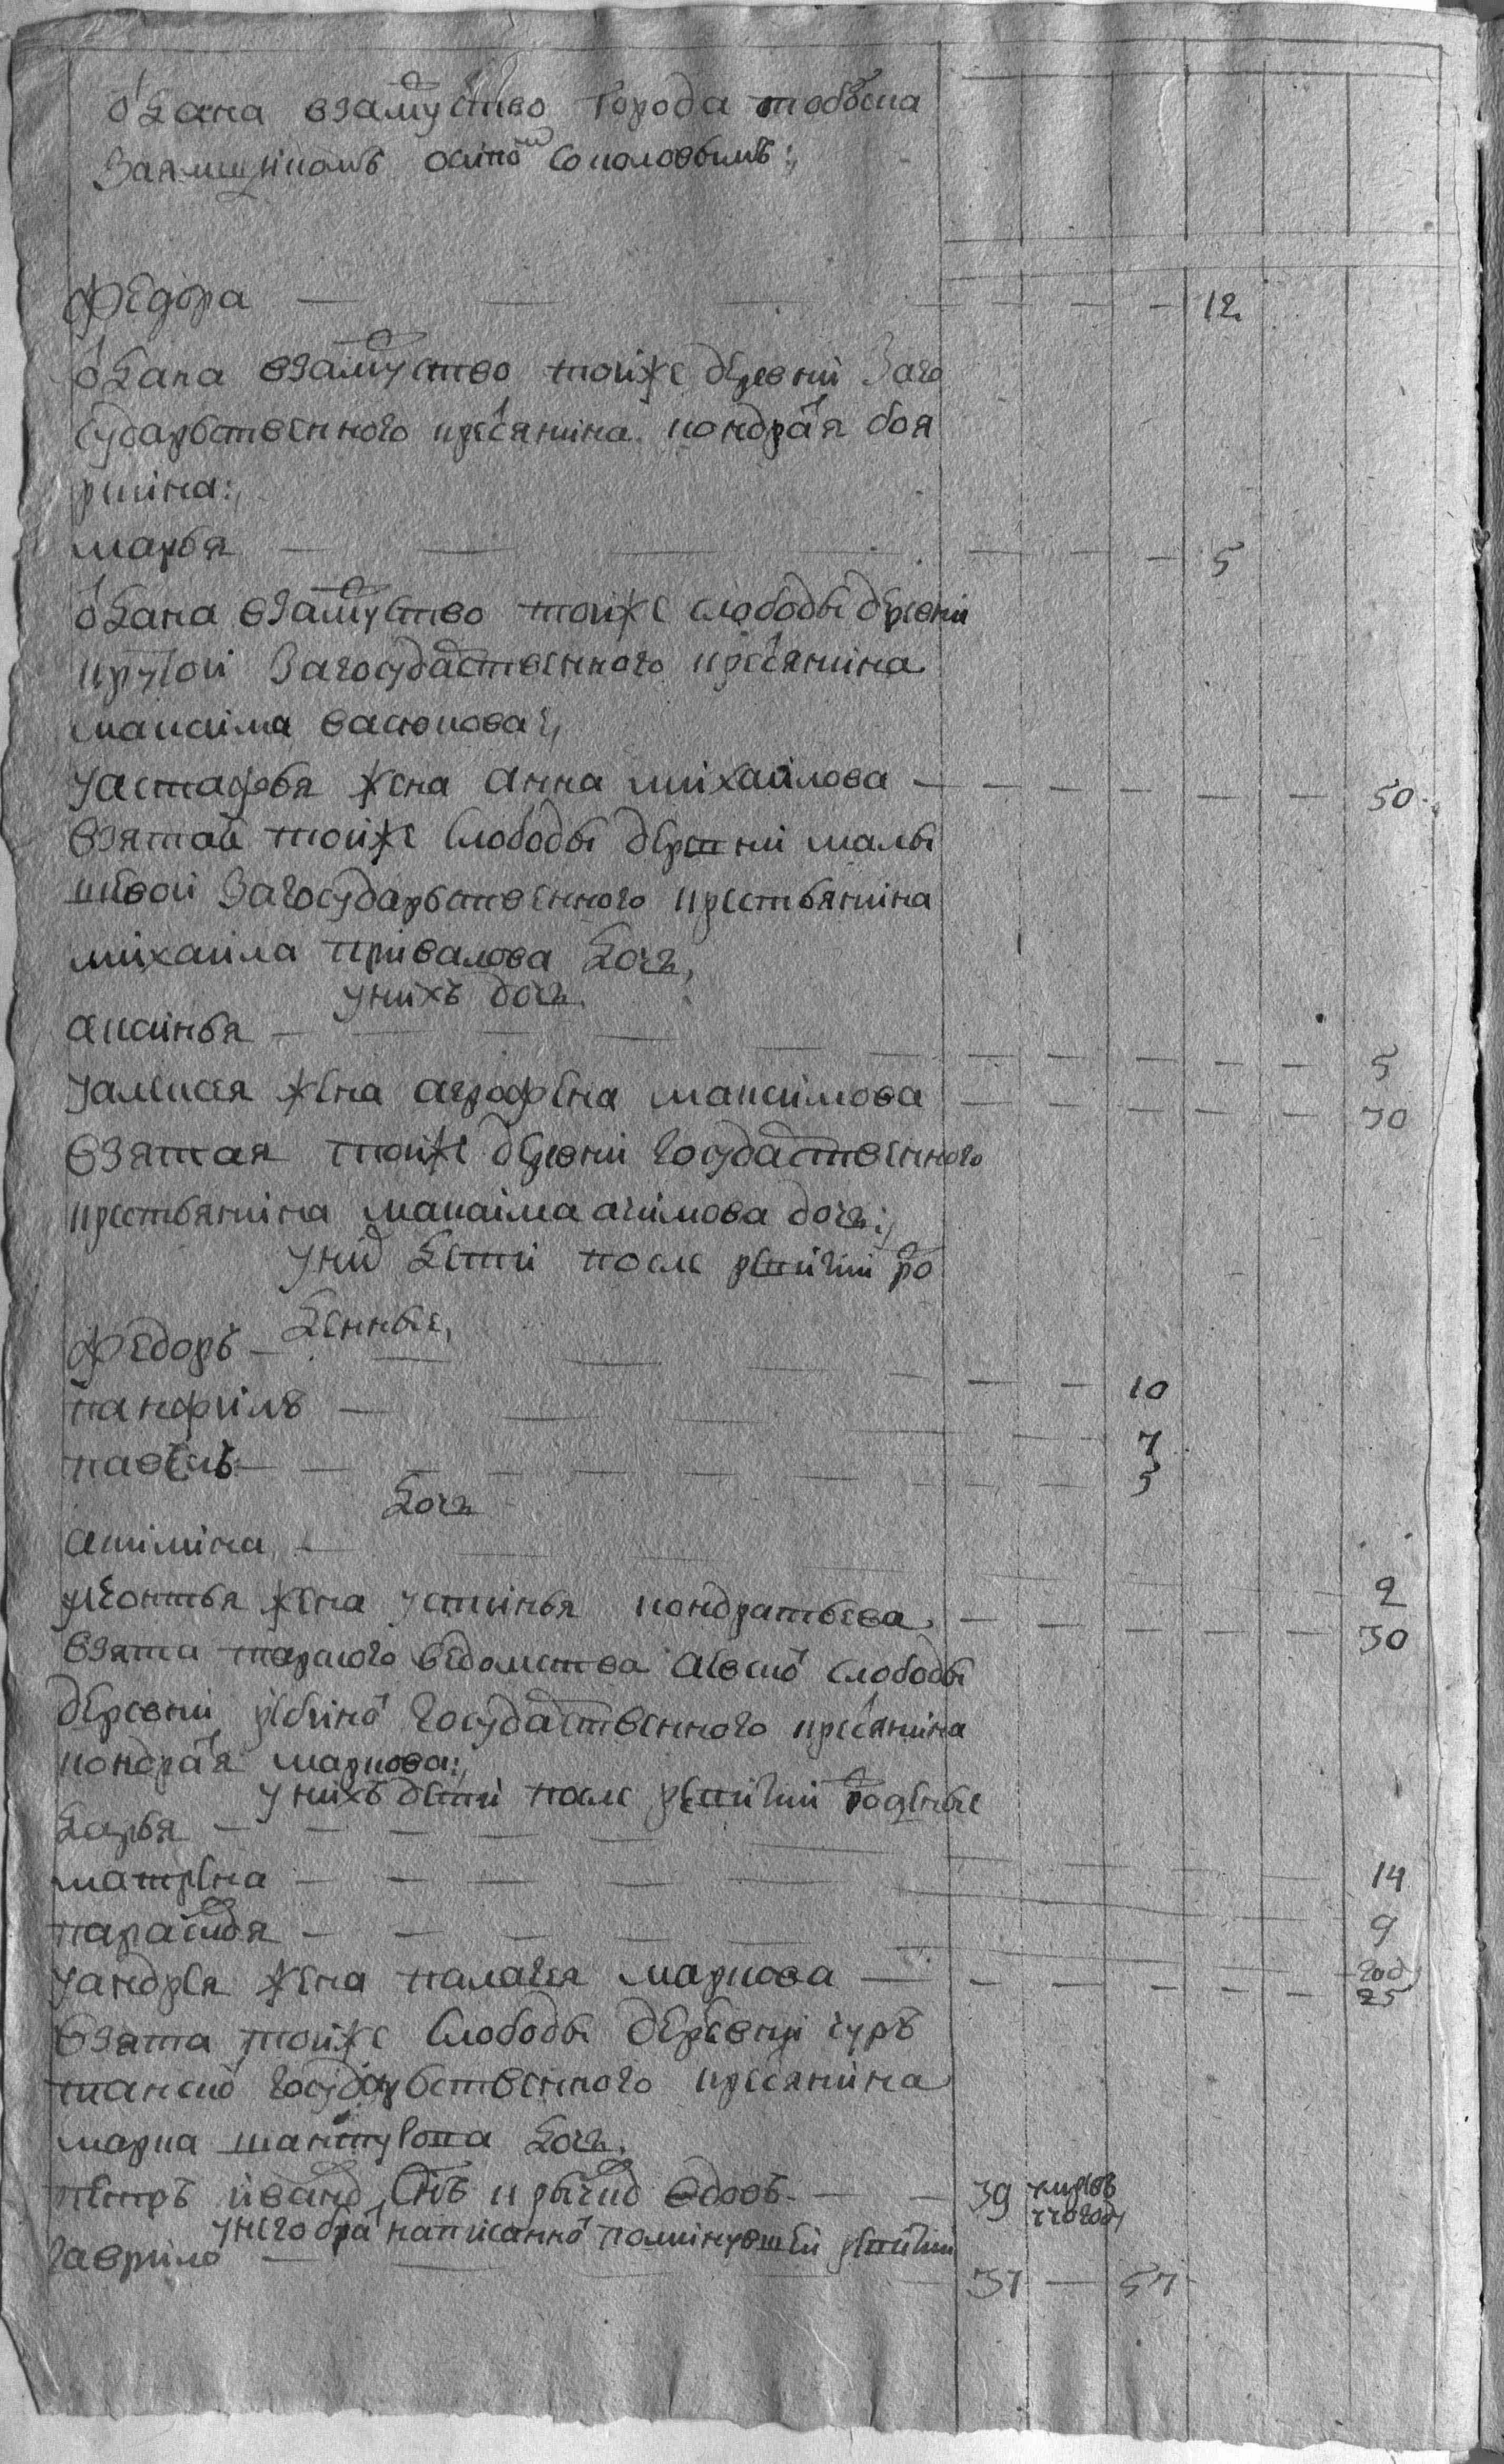 óдана взамуство города тобоска
заямщиком осипо соколовымъ:,
Федора — 12
óдана взамуство тойже деревни заго
сударственного кресянина кондрая боя
ркина:,
марья — 5
óдана взамуство тойже слободы древни
крутои загосудаственного кресянина
максима васюкова:,
уастафья жена анна михаилова — 50
взятай тойже слободы деревни малы
шевои загосударственного крестьянина
михаила привалова дочь,
униxъ дочь
аксинья — 5
уалексея жена аграфена максимова — 30
взятая тойже деревни государственного
крестьянина максима акимова дочь:,
униx дети после ревизии ро
денные,
федоръ — 10
панфилъ — 7
павелъ — 5
дочь
акилина — 2
улеонтья жена устинья кондратьева — 30
взята тарского ведомства аевско слободы
деревни ребино государственного кресянина
кондрая маркова:,
унихъ дети после ревизии роденые
дарья — 14
матрена — 9
парасковья — год
уандрея жена палагея маркова — 25
взята тойже слободы деревни
государственного кресянина
марка дочь,
петръ иванов сынъ вдовъ — 39
унего бра написанно поминувшей ревизии
гаврило — 37 — 57